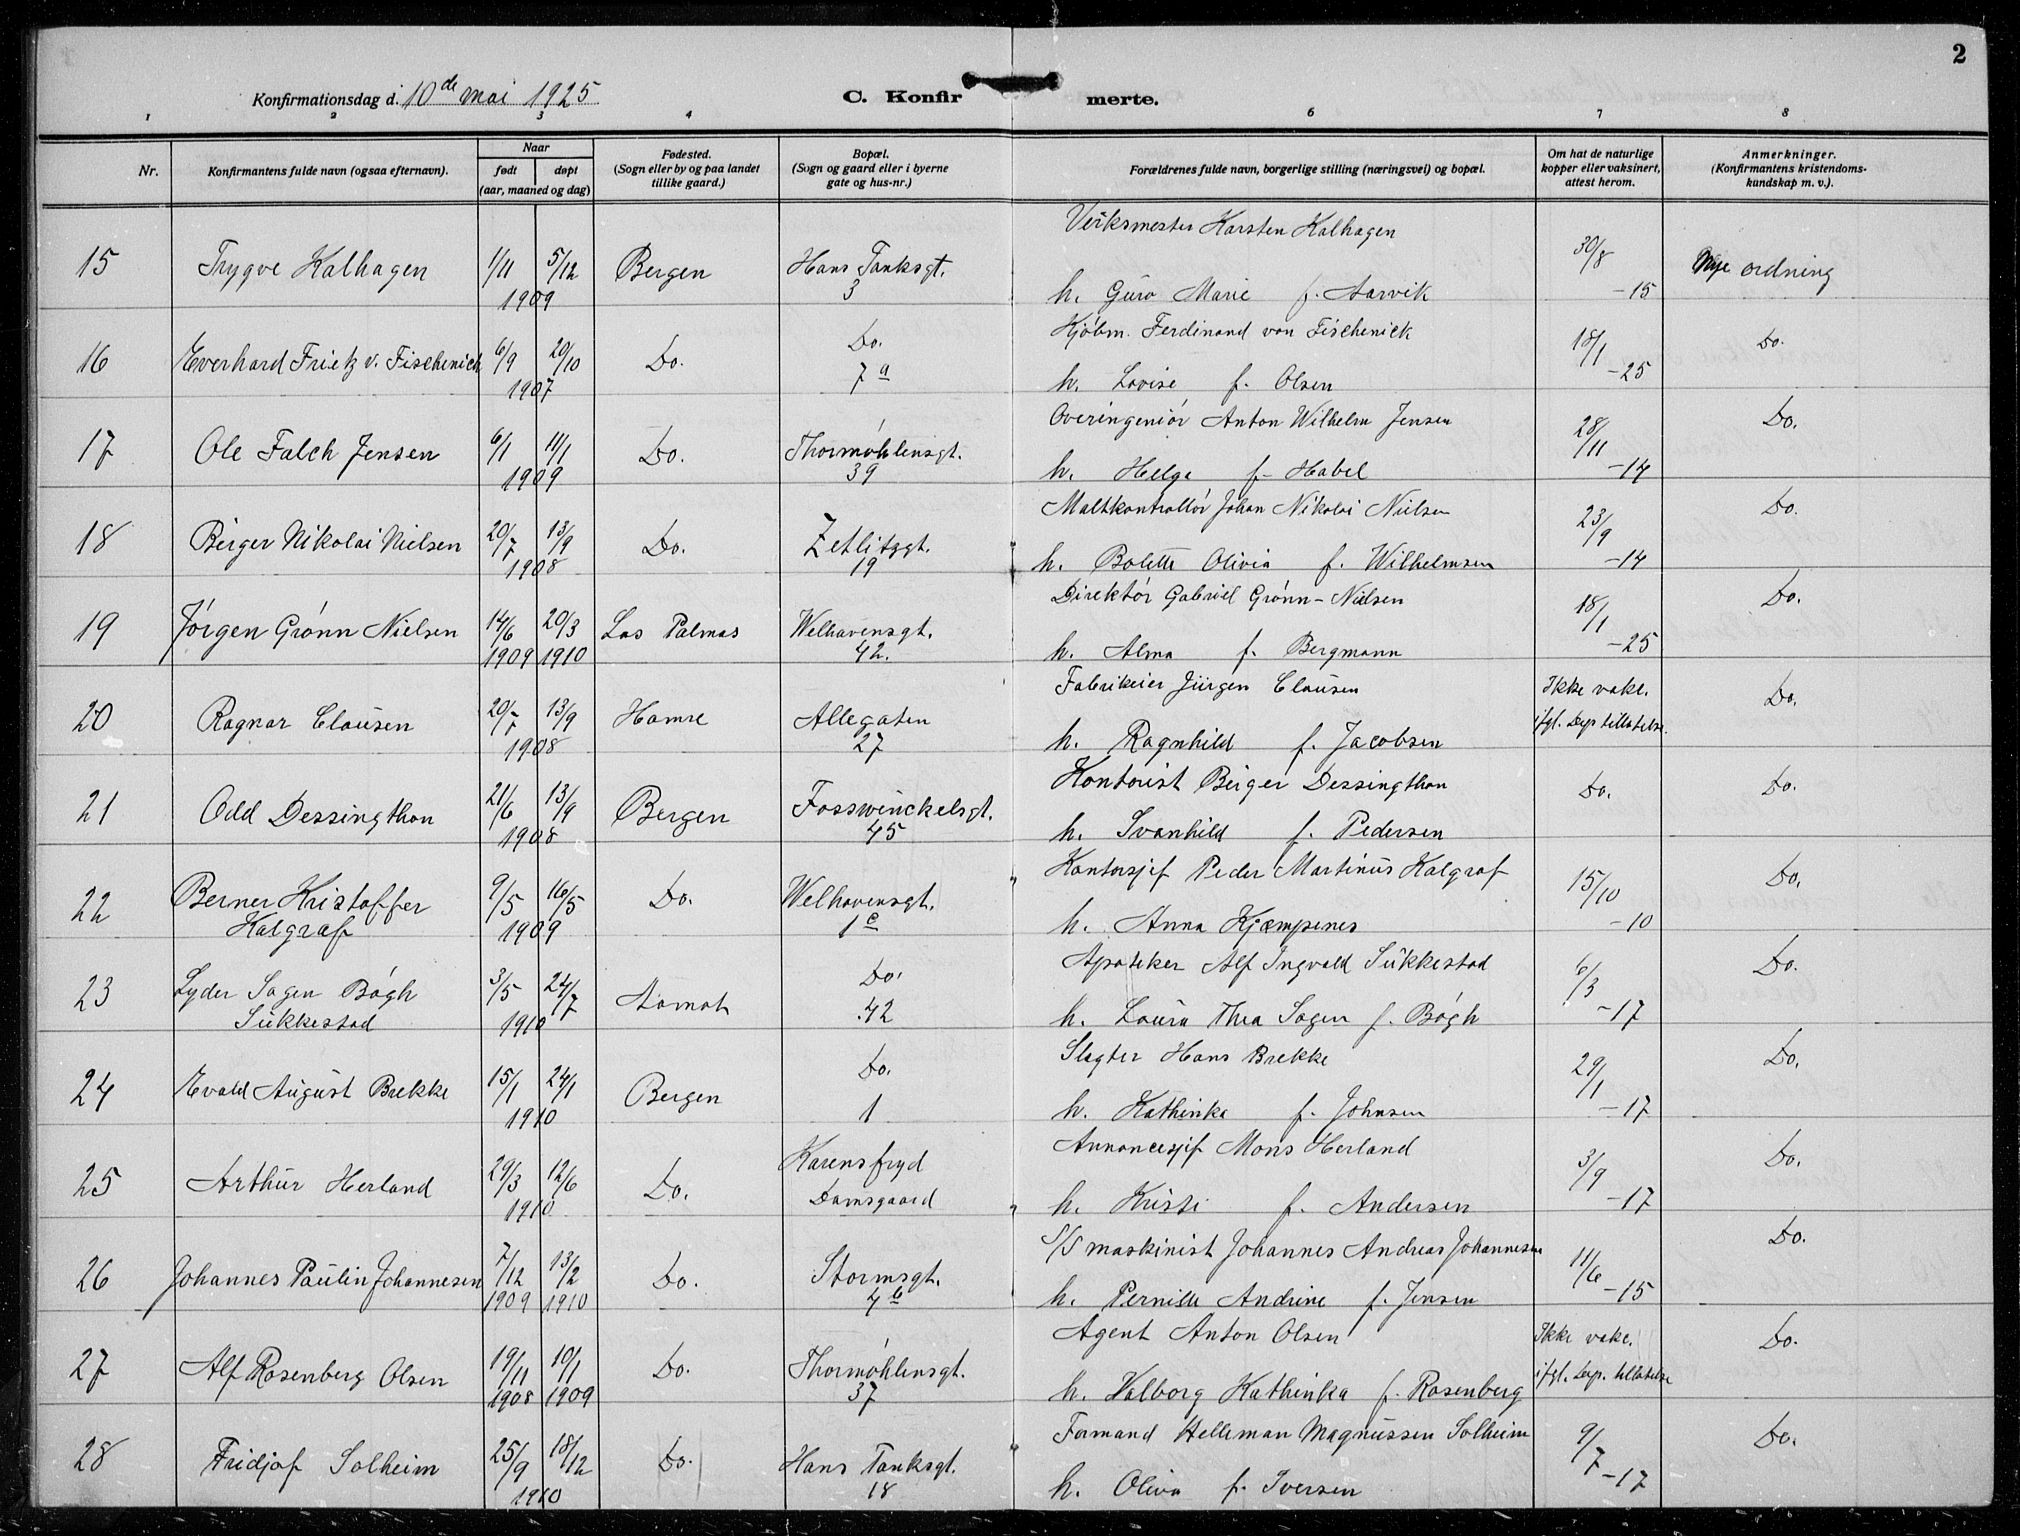 2
Konfirmationsdag d. 10de mai 1925
C. Konfirmerte.
1 2 3 4 6 7 8
Nr.
Konfirmantens fulde navn (ogsaa efternavn).
Naar
født døpt
(aar, maaned og dag)
Fødested.
(Sogn eller by og paa landet
tillike gaard.)
Bopæl.
(Sogn og gaard eller i byerne
gate og hus-nr.)
Forældrenes fulde navn, borgerlige stilling (næringsvei) og bopæl.
Om hat de naturlige
kopper eller vaksinert,
attest herom.
Anmerkninger.
(Konfirmantens kristendoms-
kundskap m. v.).
Verksmester Karsten Kalhagen
15 Trygve Kalhagen 1/11 5/12 Bergen Hans Tanksgt. 30/8 Nye ordning
1909 3 h. Guro Marie f. Aarvik -15
Kjøbm. Ferdinand von Fischenick
16 Everhard Frietz v. Fischenich 6/9 20/10 Do. Do. 18/1 Do.
1907 7a h. Lovise f. Olsen -25
Overingeniør Anton Wilhelm Jensen
17 Ole Falch Jensen 6/1 11/1 Do. Thormøhlensgt. 28/11 Do.
1909 39 h. Helga f. Habel -14
Maltkontrollør Johan Nikolai Nielsen
18 Birger Nikolai Nielsen 20/7 13/9 Do. Zetlitzgt. 23/9 Do.
1908 19 h. Bolette Olivia f. Wilhelmsen -14
Direktør Gabriel Grønn-Nielsen
19 Jørgen Grønn Nielsen 14/6 20/3 Las Palmas Welhavensgt. 18/1 Do.
1909 1910 42. h. Alma f. Bergmann -25
Fabrikeier Jürgen Clausen Ikke vakc.
20 Ragnar Clausen 20/7 13/9 Hamre Allegaten ifgl. Dep tillatelse. Do.
1908 27 h. Ragnhild f. Jacobsen
Kontorist Birger Dessingthon
21 Odd Dessingthon 21/6 13/9 Bergen Fosswinckelsgt. Do. Do.
1908 45 h. Svanhild f. Pedersen
Kontorsjef Peder Martinus Kalgraf
22 Berner Kristoffer 9/5 16/5 Do. Welhavensgt. 15/10 Do.
Kalgraf 1909 1c h. Anna Kjæmpenes -10
Apoteker Alf Ingvald Sukkestad
23 Lyder Sagen Bøgh 3/5 24/7 Aamot Do. 6/3 Do.
Sukkestad 1910 42 h. Laura Thea Sagen f. Bøgh -17
Slagter Hans Brekke
24 Evald August Brekke 15/1 24/1 Bergen Do. 29/1 Do.
1910 1 h. Kathinka f. Johnsen -17
Annoncesjef Mons Herland
25 Arthur Herland 29/3 12/6 Do. Karensfryd 3/9 Do.
1910 Damsgaard h. Kristi f. Andersen -17
S/S maskinist Johannes Andreas Johannesen
26 Johannes Paulin Johannesen 7/12 13/2 Do. Stormsgt. 11/6 Do.
1909 1910 4b h. Pernille Andrine f. Jensen -15
Agent Anton Olsen Ikke vakc.
27 Alf Rosenberg Olsen 19/11 10/1 Do. Thormøhlensgt. ifgl. Dep. tillatelse Do.
1908 1909 37 h. Valborg Kathinka f. Rosenberg
Formand Helleman Magnussen Solheim
28 Fridjof Solheim 25/9 18/12 Do. Hans Tanksgt. 9/7 Do.
1910 18 h. Oliva f. Iversen -17